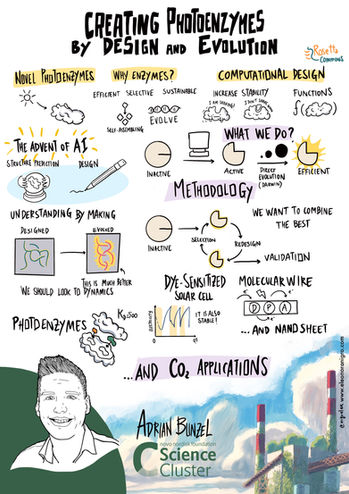 CREATING PHOTOENZYMES
BY DESIGN AND EVOLUTION
Rosetta
COMMONS
NOVEL PHOTOENZYMES
WHY ENZYMES?
COMPUTATIONAL DESIGN
EFFICIENT SELECTIVE SUSTAINABLE
SELF-ASSEMBLING
EVOLVE
INCREASE STABILITY
FUNCTIONS
THE ADVENT OF AI
STRUCTURE PREDICTION
DESIGN
WHAT WE DO?
INACTIVE
ACTIVE
DIRECT
EVOLUTION
(DARWIN)
EFFICIENT
METHODOLOGY
INACTIVE
SELECTION
REDESIGN
VALIDATION
WE WANT TO COMBINE
THE BEST
UNDERSTANDING BY MAKING
DESIGNED
EVOLVED
THIS IS MUCH BETTER
WE SHOULD LOOK TO DYNAMICS
DYE-SENSITIZED
SOLAR CELL
IT IS ALSO
STABLE!
MOLECULAR WIRE
D P A
...AND NANOSHEET
PHOTOENZYMES
...AND CO2 APPLICATIONS
ADRIAN BUNZEL
novo nordisk foundation
CO2 Science
Cluster